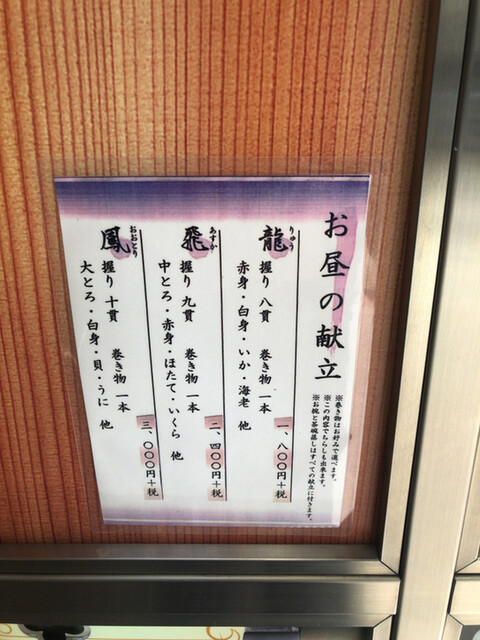 お昼の献立
※巻き物はお好みで選べます。
※この内容でちらしも出来ます。
※お椀と茶碗蒸しはすべての献立に付きます。
りゅう
龍 握り 八貫 巻き物 一本
赤身・白身・いか・海老 他
一、八〇〇円+税
あすか
飛 握り 九貫 巻き物 一本
中とろ・赤身・ほたて・いくら 他
二、四〇〇円+税
おおとり
鳳 握り 十貫 巻き物 一本
大とろ・白身・貝・うに 他
三、〇〇〇円+税